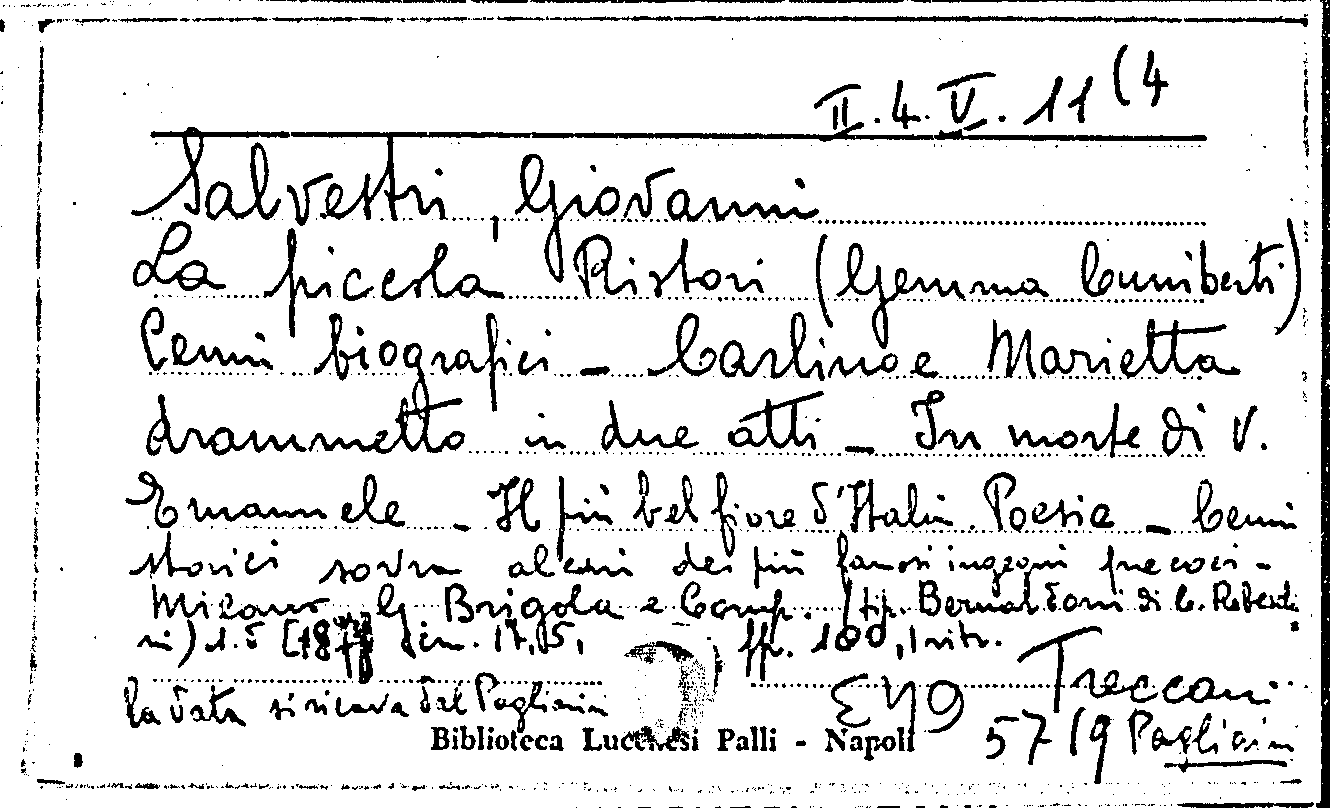 II.4.V.11(4
Salvestri, Giovanni
La piccola Ristori (Gemma Cuniberti)
Cenni biografici - Carlino e Marietta
drammetto in due atti - In morte di V.
Emanuele - Il più bel fiore d'Italia. Poesia - Cenni
storici sovra alcuni dei più famosi ingegni precoci -
Milano G. Brigola e Comp. (tip. Bernardoni di C. Rebeschi
ni) s.d [187 cm. 17,5, pp. 100, 1 ritr.
La data si ricava dal Pagliaini
Treccani
5719 Pagliaini
Biblioteca Lucchesi Palli - Napoli